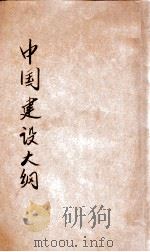 中国建设大纲
mtoou.info/